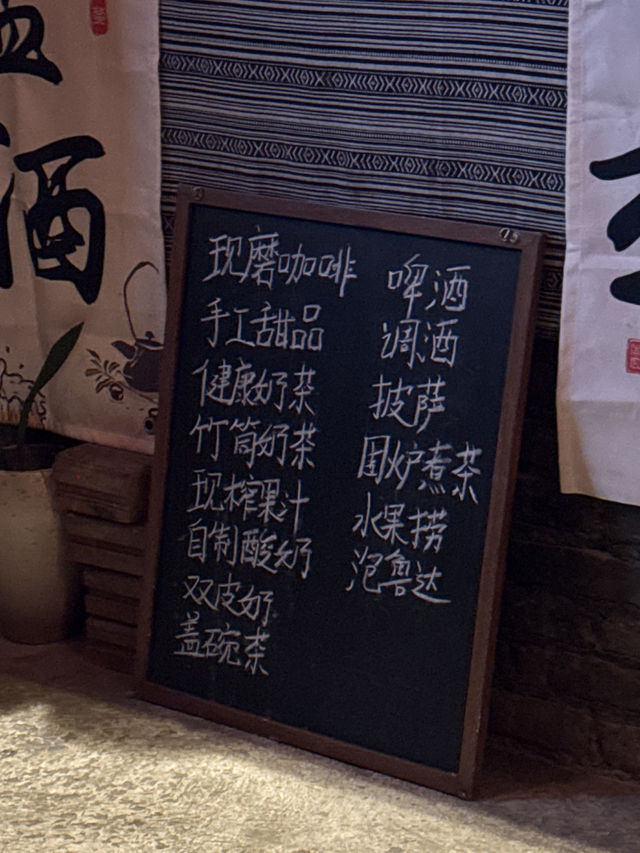 酒
现磨咖啡
手工甜品
健康奶茶
竹筒奶茶
现榨果汁
自制酸奶
双皮奶
盖碗茶
啤酒
调酒
披萨
围炉煮茶
水果捞
泡鲁达